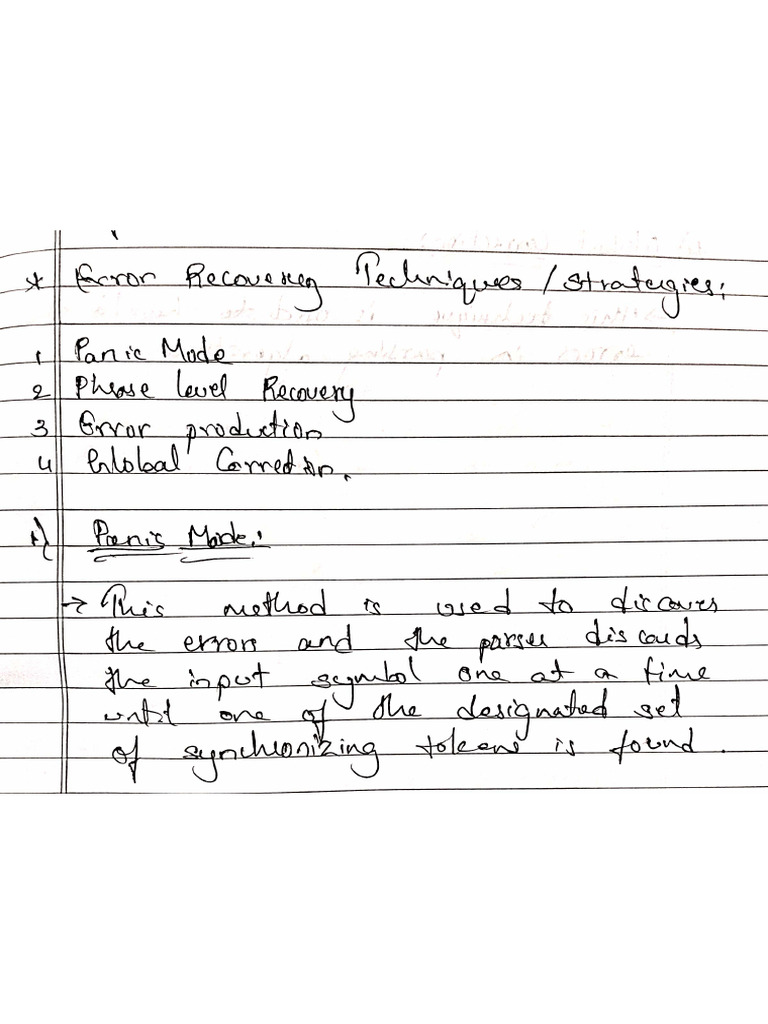 * Error Recovery Techniques / Strategies:
1 Panic Mode
2 Phrase level Recovery
3 Error production
4 Global Correction.
1) Panic Mode:
→ This method is used to discover
the errors and the parser discards
the input symbol one at a time
until one of the designated set
of synchronizing tokens is found.